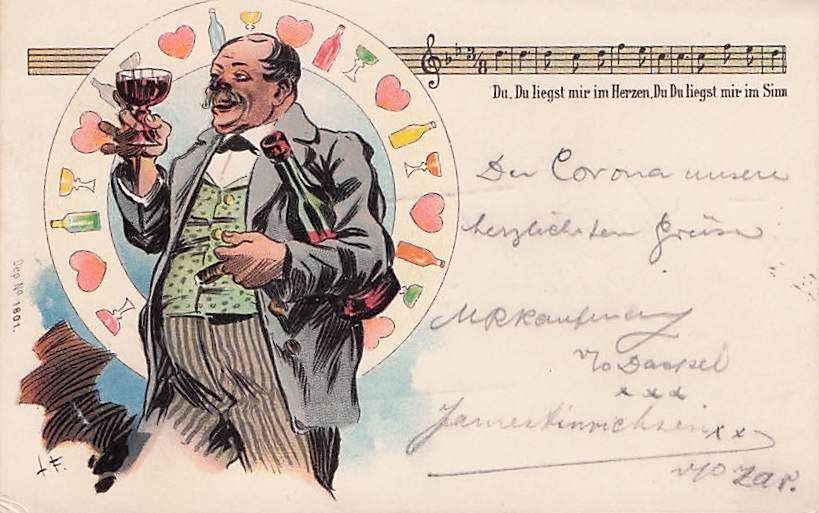 Du, Du liegst mir im Herzen, Du Du liegst mir im Sinn
Der Corona unsere
herzlichsten Grüsse
MRKaufmann
v/o Daapel
x x x
James Hinrichsen x x
v/o Zar.
Dep. No 1801.